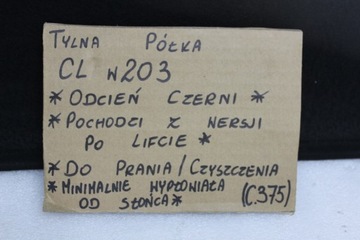 TYLNA PÓŁKA
CL W203
* ODCIEŃ CZERNI *
* POCHODZI Z WERSJI
PO LIFCIE *
* DO PRANIA / CZYSZCZENIA
* MINIMALNIE WYPŁONIAŁA (C.375)
OD SŁOŃCA *